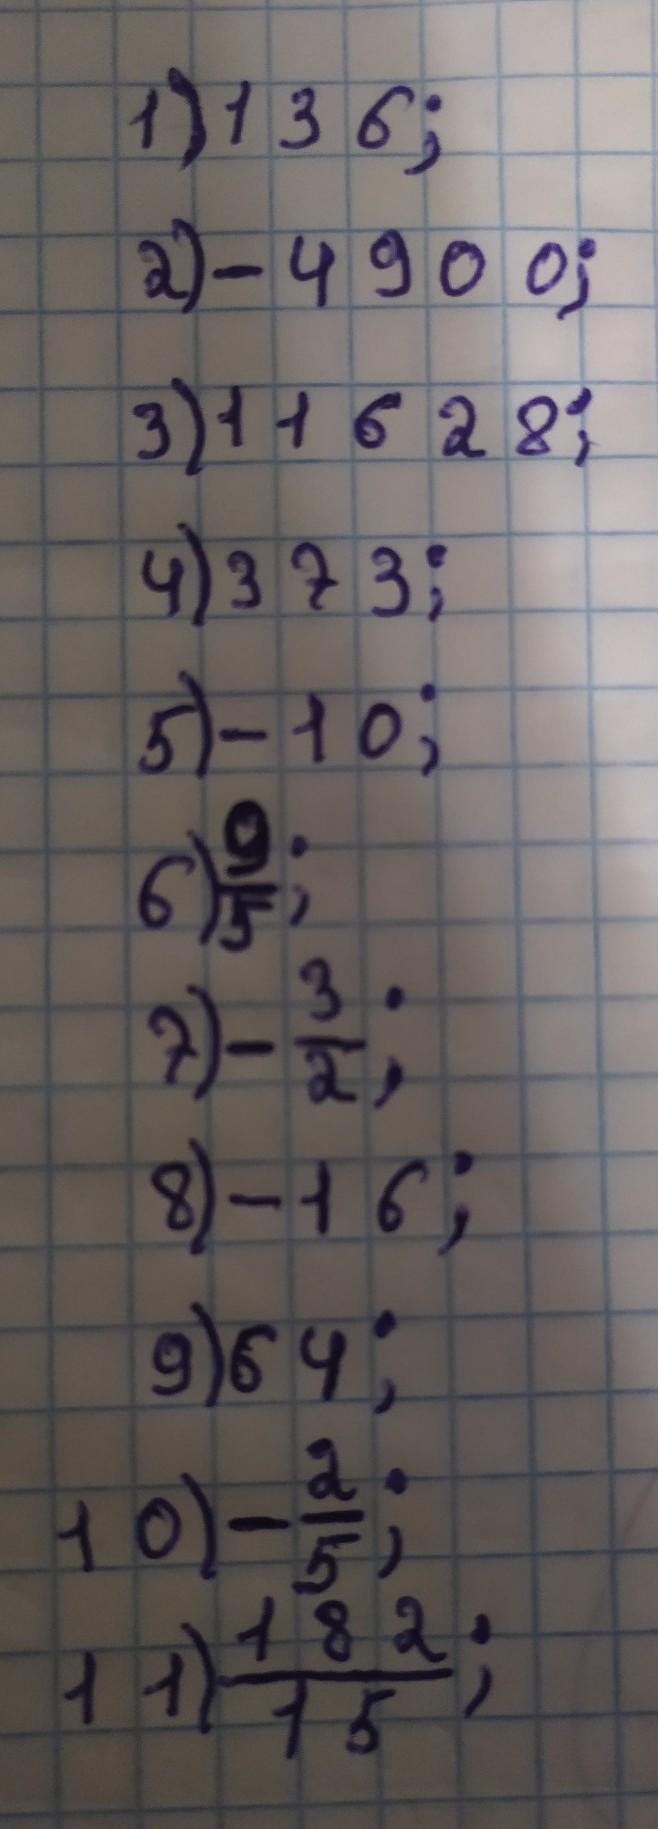 1) 136;
2) -4900;
3) 11628;
4) 373;
5) -10;
6) 9/5;
7) -3/2;
8) -16;
9) 64;
10) -2/5;
11) 182/15;